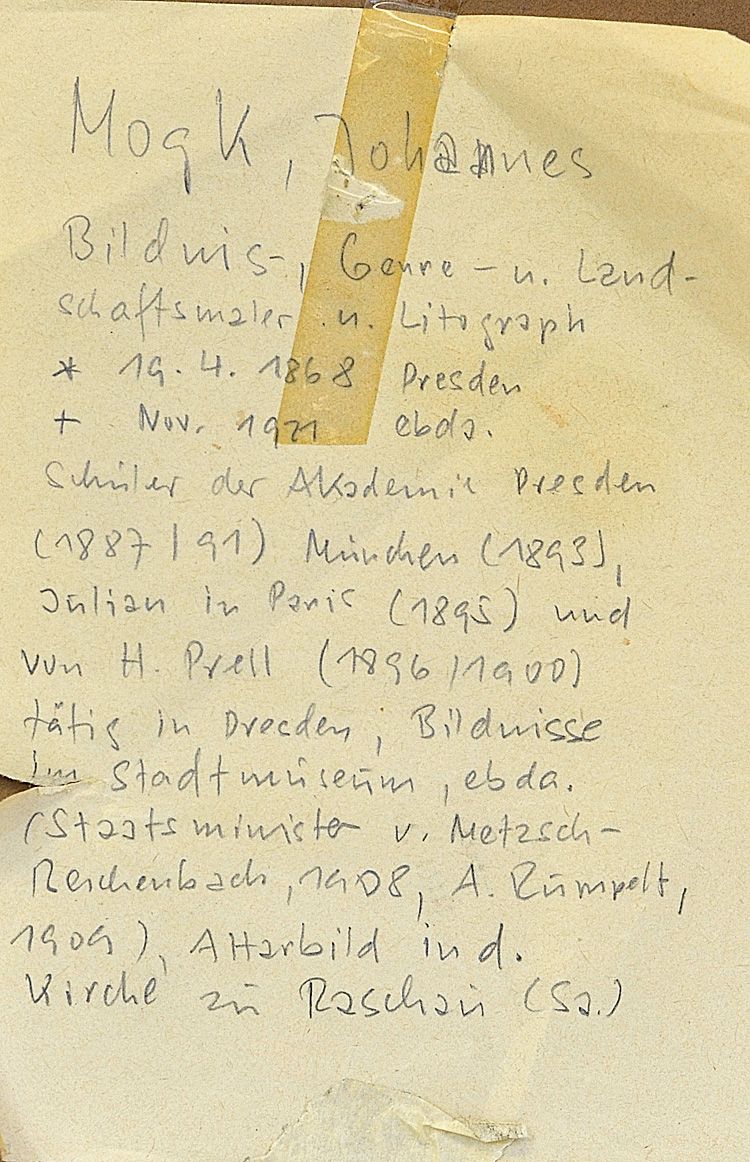 Mogk, Johannes
Bildnis-, Genre- u. Land-
schaftsmaler u. Litograph
* 19. 4. 1868 Dresden
+ Nov. 1921 ebda.
Schüler der Akademie Dresden
(1887/91) München (1893),
Julian in Paris (1895) und
von H. Prell (1896/1900)
tätig in Dresden, Bildnisse
im Stadtmuseum, ebda.
(Staatsminister v. Metzsch-
Reichenbach, 1908, A. Rumpelt,
1909), Altarbild in d.
Kirche zu Raschau (Sa.)